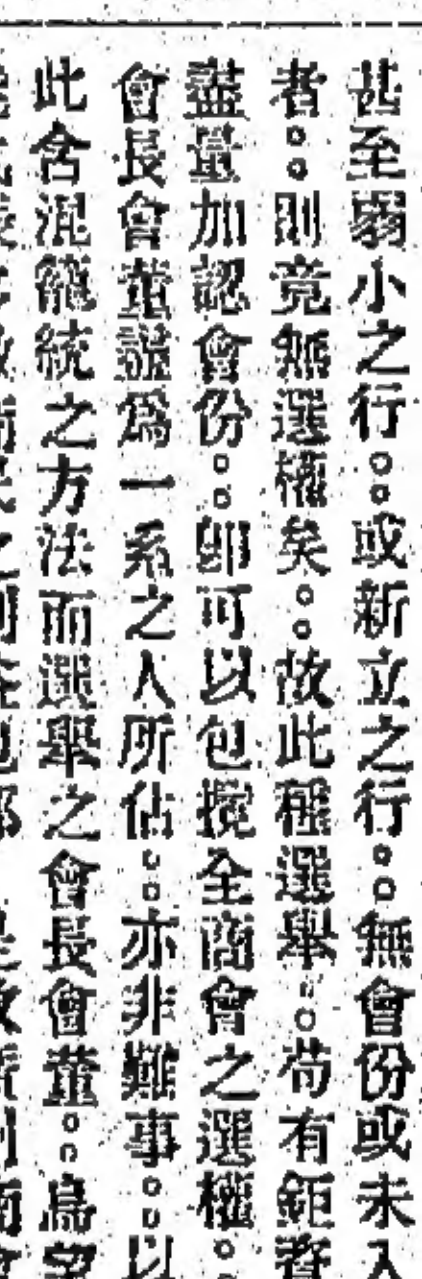 甚至弱小之行。。或新立之行。。無會份或未入
者。。則竟無選權矣。。故此種選舉。。苟有鉅資
盡量加認會份。。卽可以包攬全商會之選權。
會長會董諸爲一系之人所佔。。亦非難事。。以
此含混籠統之方法而選舉之會長會董。。烏望